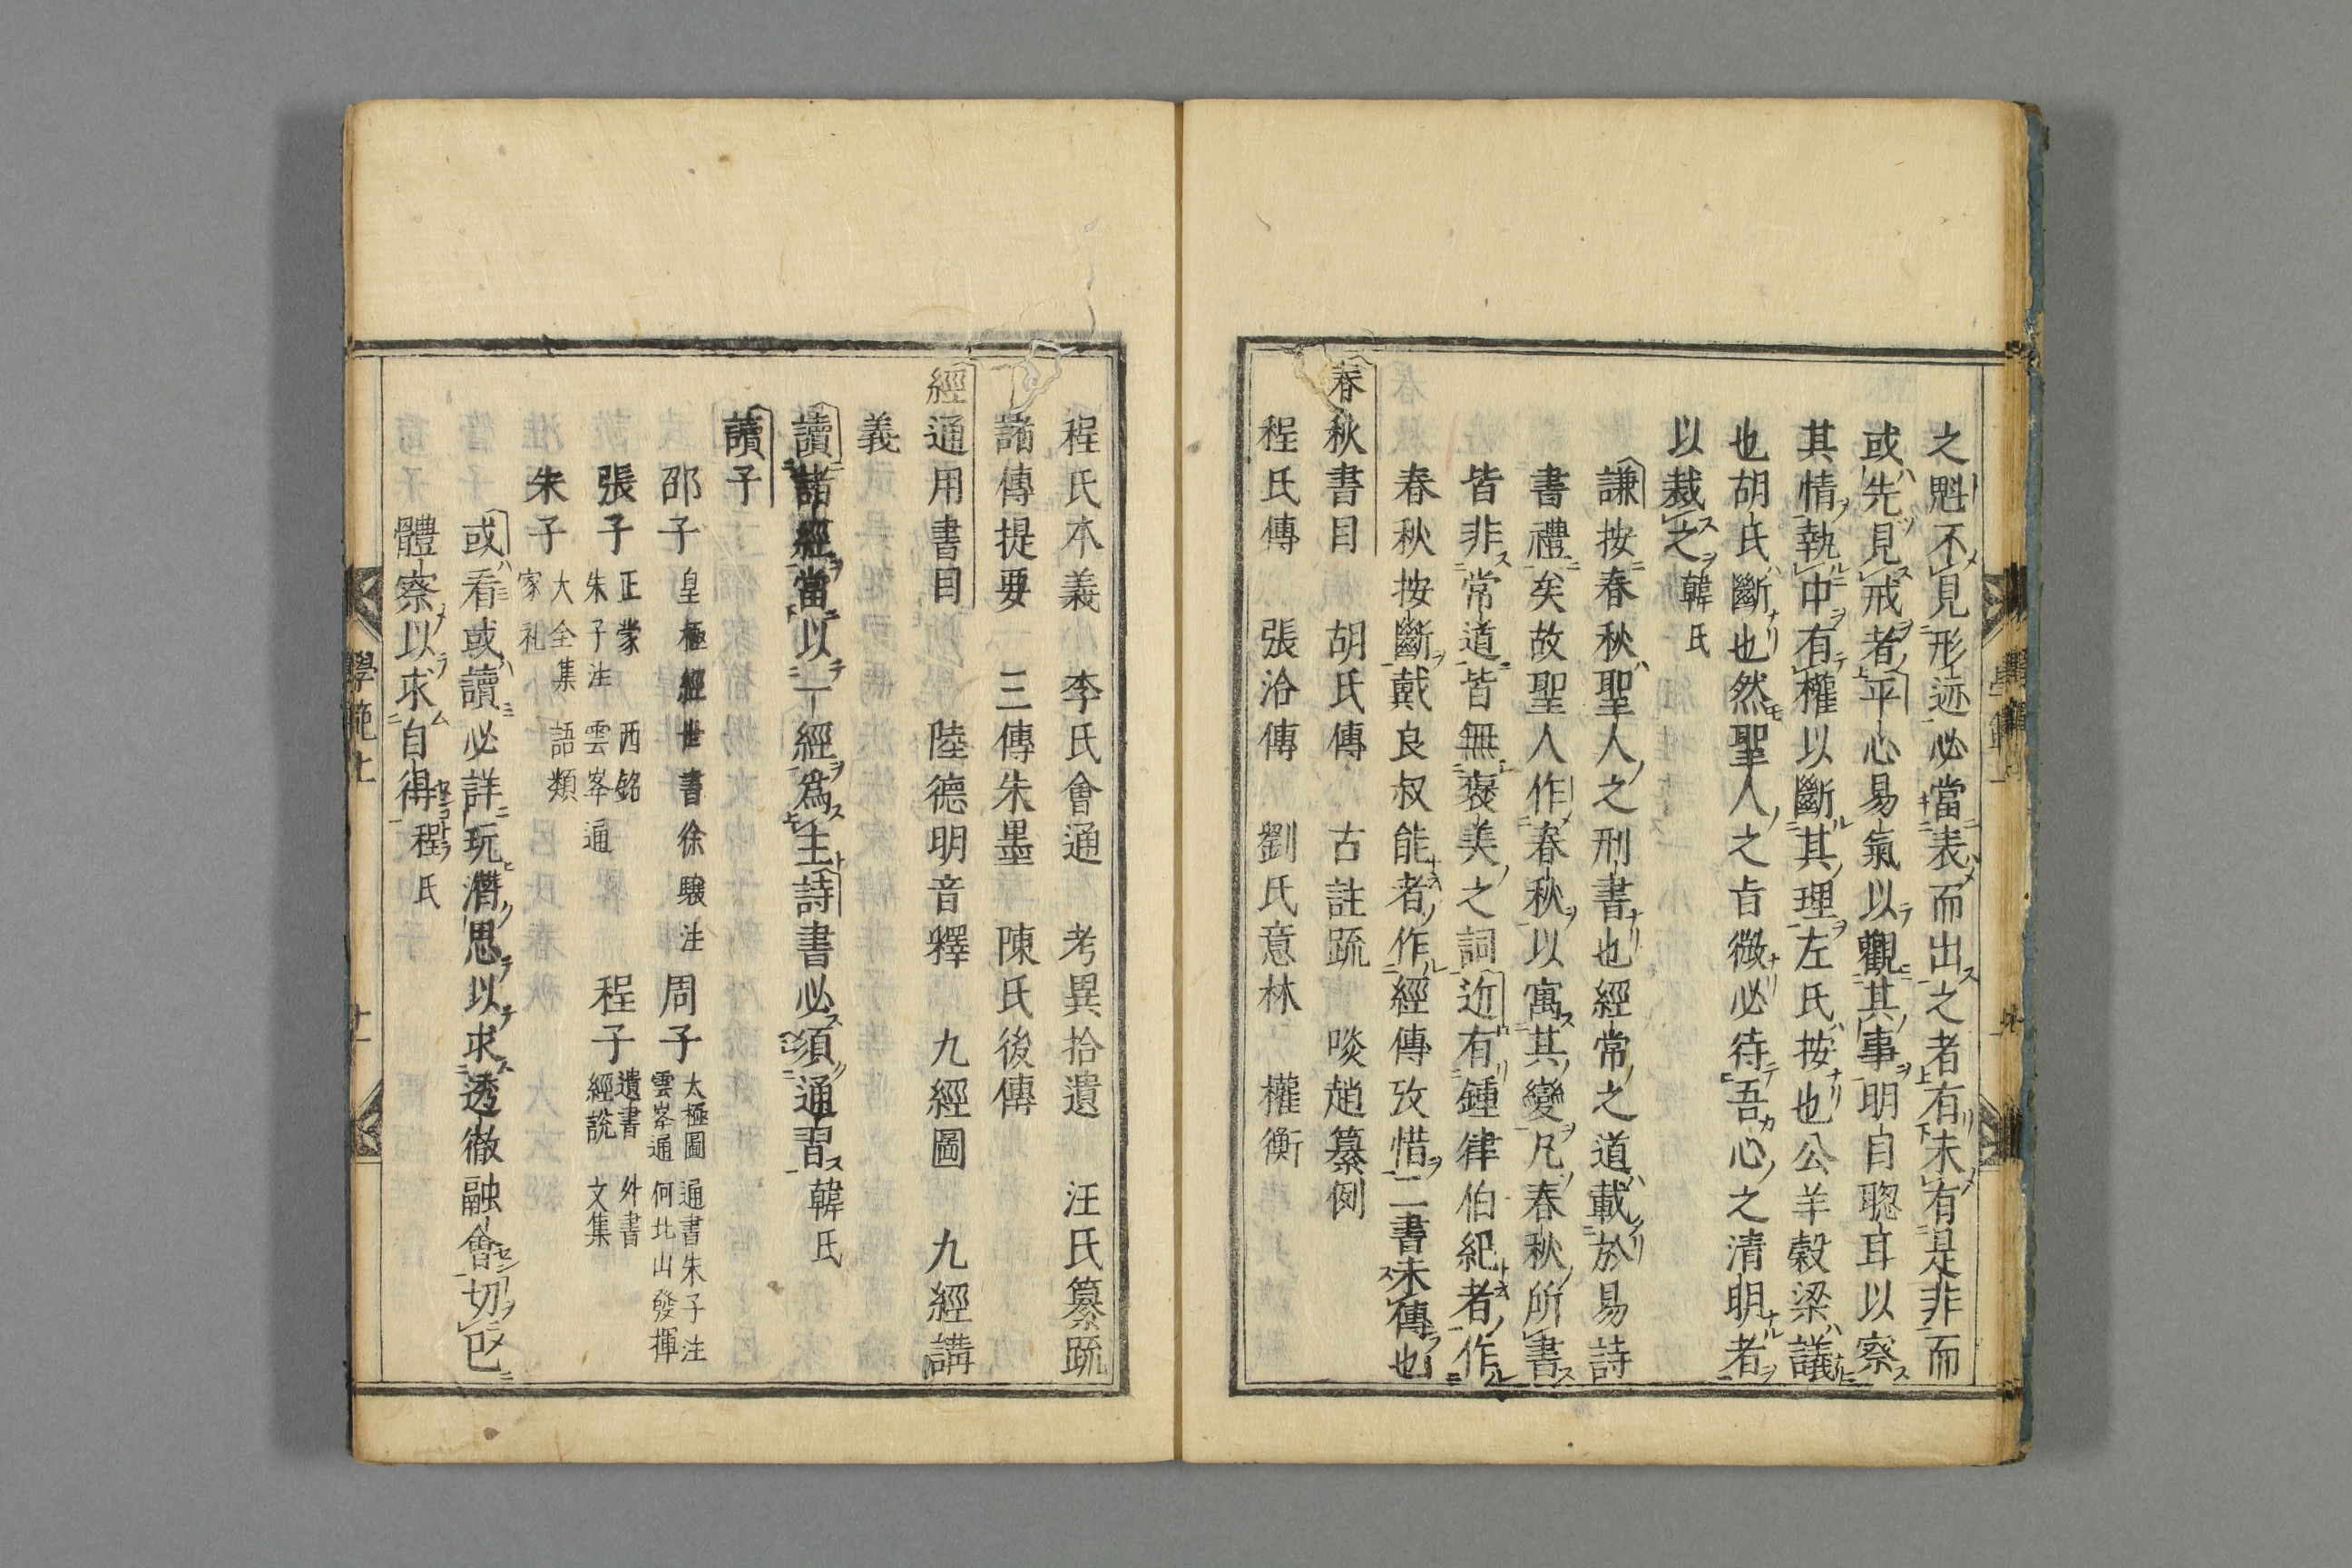 之魁不見形迹必當表而出之者有未有是非而
或先見戒者平心易氣以觀其事明目聰耳以察
其情執中有權以斷其理左氏按也公羊穀梁議
也胡氏斷也然聖人之旨微必待吾心之清明者
以裁之韓氏
謙按春秋聖人之刑書也經常之道載於易詩
書禮矣故聖人作春秋以寓其變凡春秋所書
皆非常道皆無褒美之詞近有鍾律伯紀者作
春秋按斷戴良叔能者作經傳攷惜二書未傳也
春秋書目 胡氏傳 古註䟽 啖趙纂例
程氏傳 張洽傳 劉氏意林 權衡
程氏本義 李氏會通 考異拾遺 汪氏纂䟽
諸傳提要 三傳朱墨 陳氏後傳
經通用書目 陸德明音釋 九經圖 九經講
義
讀諸經當以一經爲主詩書必須通習韓氏
讀子
邵子 皇極經世書徐驥注 周子 太極圖 通書朱子注
雲峯通 何北山發揮
張子 正蒙 西銘
朱子注 雲峯通 程子 遺書 外書
經説 文集
朱子 大全集 語類
家礼
或看或讀必詳玩潛思以求透徹融會切已
體察以求自得程氏
學範上 十一